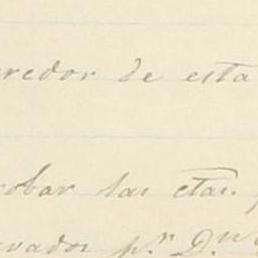 redor de esta
obar las ctas.
vados p.r D.n